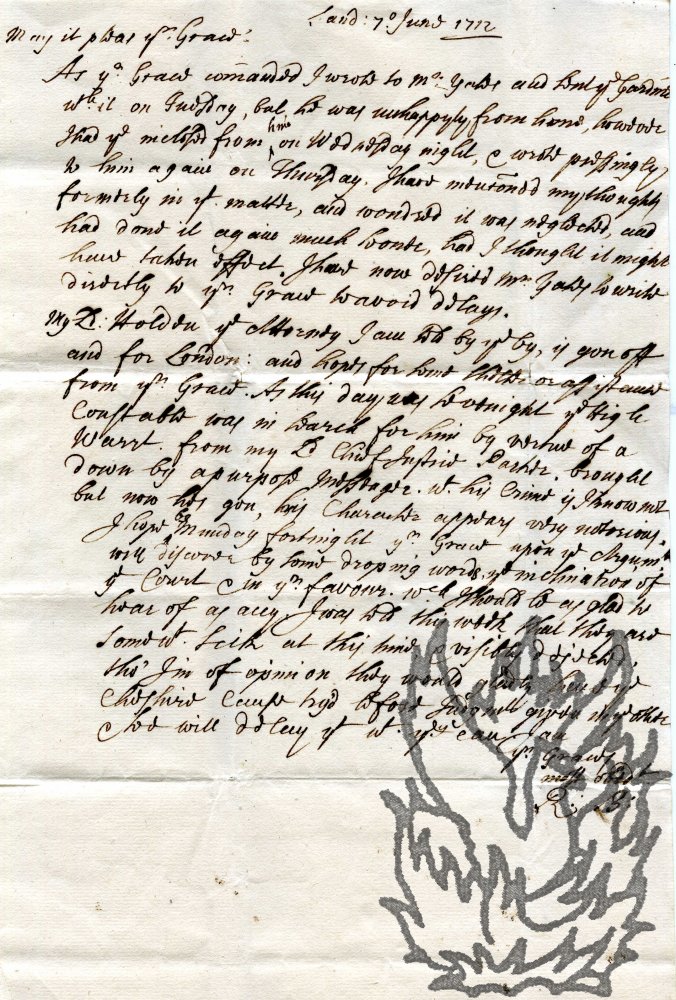 Land: 7º June 1712
May it pleas yr. Grace.
As yr Grace com̄anded I wrote to Mr. Yates and sent ye Gardner
wth it on Tuesday, but he was unhappyly from home, however
I had ye inclosed from him on Wednesday night, & wrote pressingly
to him again on Thursday. I have mentioned my thoughts
formerly in ye. matter, and wondred it was neglected, and
had done it again much sooner, had I thought it might
have taken effect. I have now desired Mr Yates to write
directly to yr. Grace to avoid delays.
My Ld: Holden ye Attorney I am told by ye by, is gon off
and for London: and hopes for some shelter or assistance
from yr. Grace. As this day was sevenight ye High
Constable was in search for him by vertue of a
Warrt. from my Ld Chief Justice Parker, brought
down by a purpose Messenger. wt. his Crime is I know not
but now hes gon, his Character appears very notorious.
I hope Munday fortnight yr. Grace upon ye Argumt
will discover by some droping words, ye inclination of
ye Court & in yr. favour. wch I should be as glad to
hear of as any. I was told this week that they are
somewt. sick at this time, & visibly dejected,
tho' I'm of opinion they would gladly have ye
Cheshire Cause try'd before Judgmt given in ye other
& so will delay yt wt. yey can. I am
yr. Graces
most obedt
R: B: